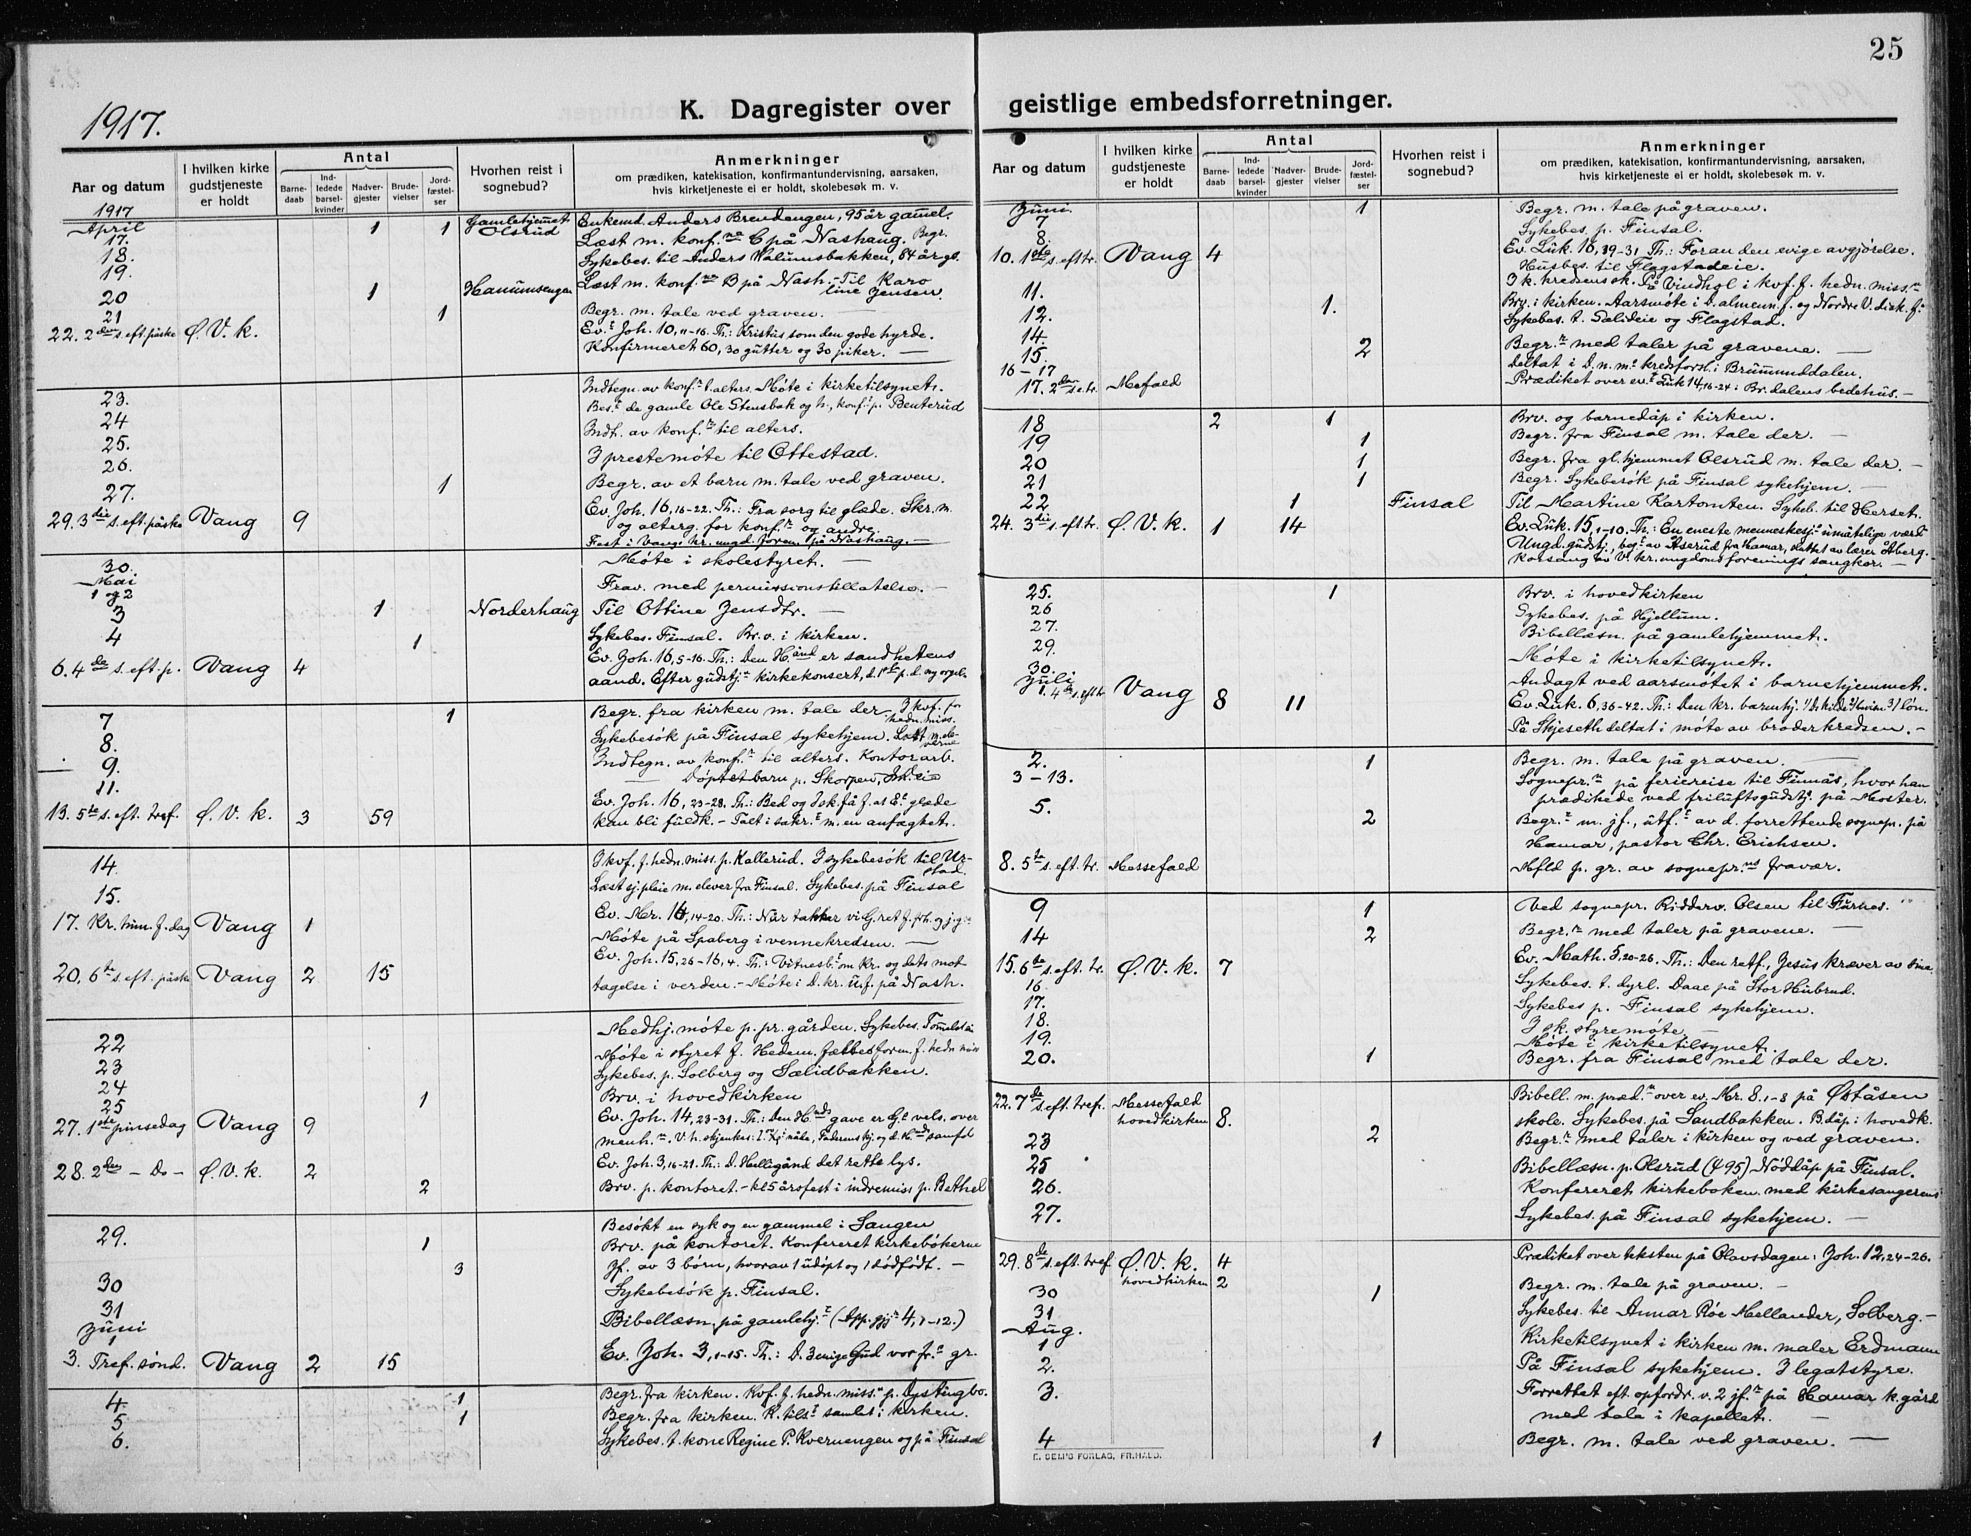 1917.
K. Dagregister over
Aar og datum
I hvilken kirke gudstjeneste er holdt
Antal
Barne-daab
Ind-ledede barsel-kvinder
Nadver-gjester
Brude-vielser
Jord-fæstel-ser
Hvorhen reist i sognebud?
Anmerkninger
om prædiken, katekisation, konfirmantundervisning, aarsaken,
hvis kirketjeneste ei er holdt, skolebesøk m. v.
1917
April
17. 1 1 Gamlehjemmet Olsrud Enkemd. Anders Brendengen, 95 år gammel.
18. Læst m. konf.ne C på Nashaug. Begr.
19. Sykebes. til Anders
20 1 Læst m. konf.ne B på Nash. Til Karoline Jensen.
21 1 Begr. m. tale ved graven.
22. 2den s. eft. påske Ø. V. k. Ev. Joh. 10, 11-16. Th.: Kristus som den gode hyrde.
Konfirmeret 60, 30 gutter og 30 piker. —
23. Indtegn. av konf. t. alters. Møte i kirketilsynet.
24 Bes. de gamle Ole Stensbak og h., konf. p. Benterud
25. Indt. av konf. til alters.
26. I prestemøte til Ottestad.
27. 1 Begr. av et barn m. tale ved graven.
29. 3die s. eft. påske Vang 9 Ev. Joh. 16, 16-22. Th.: Fra sorg til glæde. Skr. m.
og alterg. for konf. og andre.
Fest i Vangs kr. ungd. foren. på Nashaug. —
30. Møte i skolestyret. —
Mai
1 og 2 Frav. med permissionstillatelse. —
3 1 Norderhaug Til Ottine Jensdtr. —
4 1 Sykebes. Finsal. Br. v. i kirken.
6. 4de s. eft. p. Vang 4 Ev. Joh. 16, 5-16. Th.: Den H. ånd er sandhetens
aand. Efter gudstj. kirkekonsert,
7 1 Begr. fra kirken m. tale der. I kvf. for hedn. miss.
8. Sykebesøk på Finsal sykehjem. Læst m. eleverne
9. Indtegn. av konf. til alters. Kontorarb.
11. — Døpt et barn p. Skorpen,
13. 5te s. eft. tref. Ø. V. k. 3 59 Ev. Joh. 16, 23-28. Th.: Bed og I sk. få f. at E. glæde
kan bli fuldk. –
14. I kvf. f. hedn. miss. p. Kallerud. I sykebesøk til
15. Læst sj. pleie m. elever fra Finsal. Sykebes. på Finsal
17. Kr. him. f. dag Vang 1 Ev. Mr. 16, 14-20. Th.: Når takker vi
Møte på Spaberg i vennekredsen. —
20. 6te s. eft. påske Vang 2 15 Ev. Joh. 15, 26 – 16, 4. Th.: Vitnesb. om Kr. og dets mottagelse i verden. – Møte i D. kr. u. f. på Nash.
22 Medhj. møte p. pr. gården. Sykebes.
23 Møte i styret f. Hedem. fællesforen. f. hedn. miss
24 Sykebes. p. Solberg og Sælidbakken.
25 1 Brv. i hovedkirken
27. 1ste pinsedag Vang 9 Ev. Joh. 14, 23-31. Th.: Den H. ånds gave er Gl vels. over
menh.
28. 2den – Do – Ø. V. k. 2 Ev. Joh. 3, 16-21. Th.: D. Helligånd det rette lys.
2 Brv. p. kontoret. – kl 5 årsfest i indremiss p. Bethel
29. Besøkt en syk og en gammel i Sangen
1 Brv. på kontoret. Konfereret kirkebøkerne
30 3 Jf. av 3 børn, hvorav 1 udøpt og 1 dødfødt. —
31 Sykebesøk p. Finsal.
Juni
1 Bibellæsn. på gamlehj. (Ap. gj. 4, 1-12.)
3. Tref. sønd. Vang 2 15 Ev. Joh. 3, 1-15. Th.: D. 3 enige Gud vor fr. gr.
4 1 Begr. fra kirken. Kvf. f. hedn. miss. p. Dystingbo.
5 1 Begr. fra kirken. K. tils. samlet i kirken.
6. Sykebes. t. kone Regine P. Kvernengen og på Finsal
25
geistlige embedsforretninger.
Aar og datum
I hvilken kirke gudstjeneste er holdt
Antal
Barne-daab
Ind-ledede barsel-kvinder
Nadver-gjester
Brude-vielser
Jord-fæstel-ser
Hvorhen reist i sognebud?
Anmerkninger
om prædiken, katekisation, konfirmantundervisning, aarsaken,
hvis kirketjeneste ei er holdt, skolebesøk m. v.
Juni
7 1 Begr. m. tale på graven.
8. Sykebes. p. Finsal.
10. 1ste s. eft. tr. Vang 4 Ev. Luk. 16, 19-31 Th: Foran den evige avgjørelse.
Husbes. til Flagstadeie.
11. I k. kredens sk. På Vindhol i kvf. f. hedn. miss.
12. 1. Brv. i kirken. Aarsmøte i
14. Sykebes. t. Sælideie og Flagstad.
15. 2 Begr. med taler på gravene. —
16 – 17 Deltat i D. n. m. kredsforsl. i Brummunddalen.
17. 2den s. e. tr. Mefald Prædiket over ev. Luk 14, 16-24 i Br. dalens bedehus. –
18 2 1 Brv. og barnedåp i kirken.
19 1 Begr. fra Finsal m. tale der. —
20 1 Begr. fra gl. hjemmet Olsrud m. tale der. –
21 1 Begr. Sykebesøk på Finsal sykehjem. —
22 1 Finsal Til Martine Kartomten. Sykeb. til Herset.
24. 3die s. eft. tr. Ø. V. k. 1 14 Ev. Luk. 15, 1-10. Th.: En eneste menneskesj. umåtelige værd
Ungd. gudstj., beg. av Åserud fra Hamar, sluttet av lærer Åberg.
Korsang av V. kr. ungdomsforenings sangkor. —
25. 1 Brv. i hovedkirken
26 Sykebes. på Hjellum.
27. Bibellæsn. på gamlehjemmet.
29. Møte i kirketilsynet.
30. Andagt ved aarsmøtet i barnehjemmet.
Juli
1. 4de s. eft. tr. Vang 8 11 Ev. Luk. 6, 36-42. Th.: Den kr. barmhj. 1) Ds kilde 2) 3) løn.
På Skjeseth deltat i møte av broderkredsen. –
2. 1 Begr. m. tale på graven. —
3 – 13. Sognepr. på feriereise til Finnås, hvor han
prædikede ved friluftsgudstj. på Moster.
5. 2 Begr. m. jf., utf. av d. forrettende sognepr. på
Hamar, pastor Chr. Erichsen.
8. 5te s. eft. tr. Messefald Mfld p. gr. av sognepr.ns fravær.
9 1 Ved sognepr. Ridderv. Olsen til Furnes.
14 2 Begr. med taler på gravene. —
15. 6te s. eft. tr. Ø. V. k. 7 Ev. Math. 5, 20-26. Th.: Den retf., Jesus kræver av sine
16. Sykebes. t. dyrl. Daae på Stor Hubrud.
17. Sykebes p. Finsal sykehjem.
18. I sk. styremøte —
19. Møte i kirketilsynet.
20. 1 Begr. fra Finsal med tale der.
22. 7de s. eft. tref. Messefald hovedkirken 8. Bibell. m. præd. over ev. Mr. 8, 1-8 på Øståsen
skole. Sykebes. på Sandbakken. B.dåp i hovedk.
23 2 Begr. med taler i kirken og ved graven.
25 Bibellæsn. p. Olsrud (495) Nøddåp på Finsal.
26. Konfereret kirkeboken med kirkesangerens
27. Sykebes. på Finsal sykehjem. —
29. 8de s. eft. tref. Ø. V. k. 4 Prædiket over teksten på Olavsdagen: Joh. 12, 24-26.
hovedkirken 2
30 1 Begr. m. tale på graven. —
31 Sykebes. til Annar Røe Mellander, Solberg. –
Aug.
1 Kirketilsynet i kirken m. maler Erdmann
2. På Finsal sykehjem. I legatstyre.
3. Forrettet eft. opfordr. v. 2 jf. på Hamar k.gård
med tale i kapellet. —
4 1 Begr. m. tale ved graven. —
E. SEM'S FORLAG, FR.HALD.